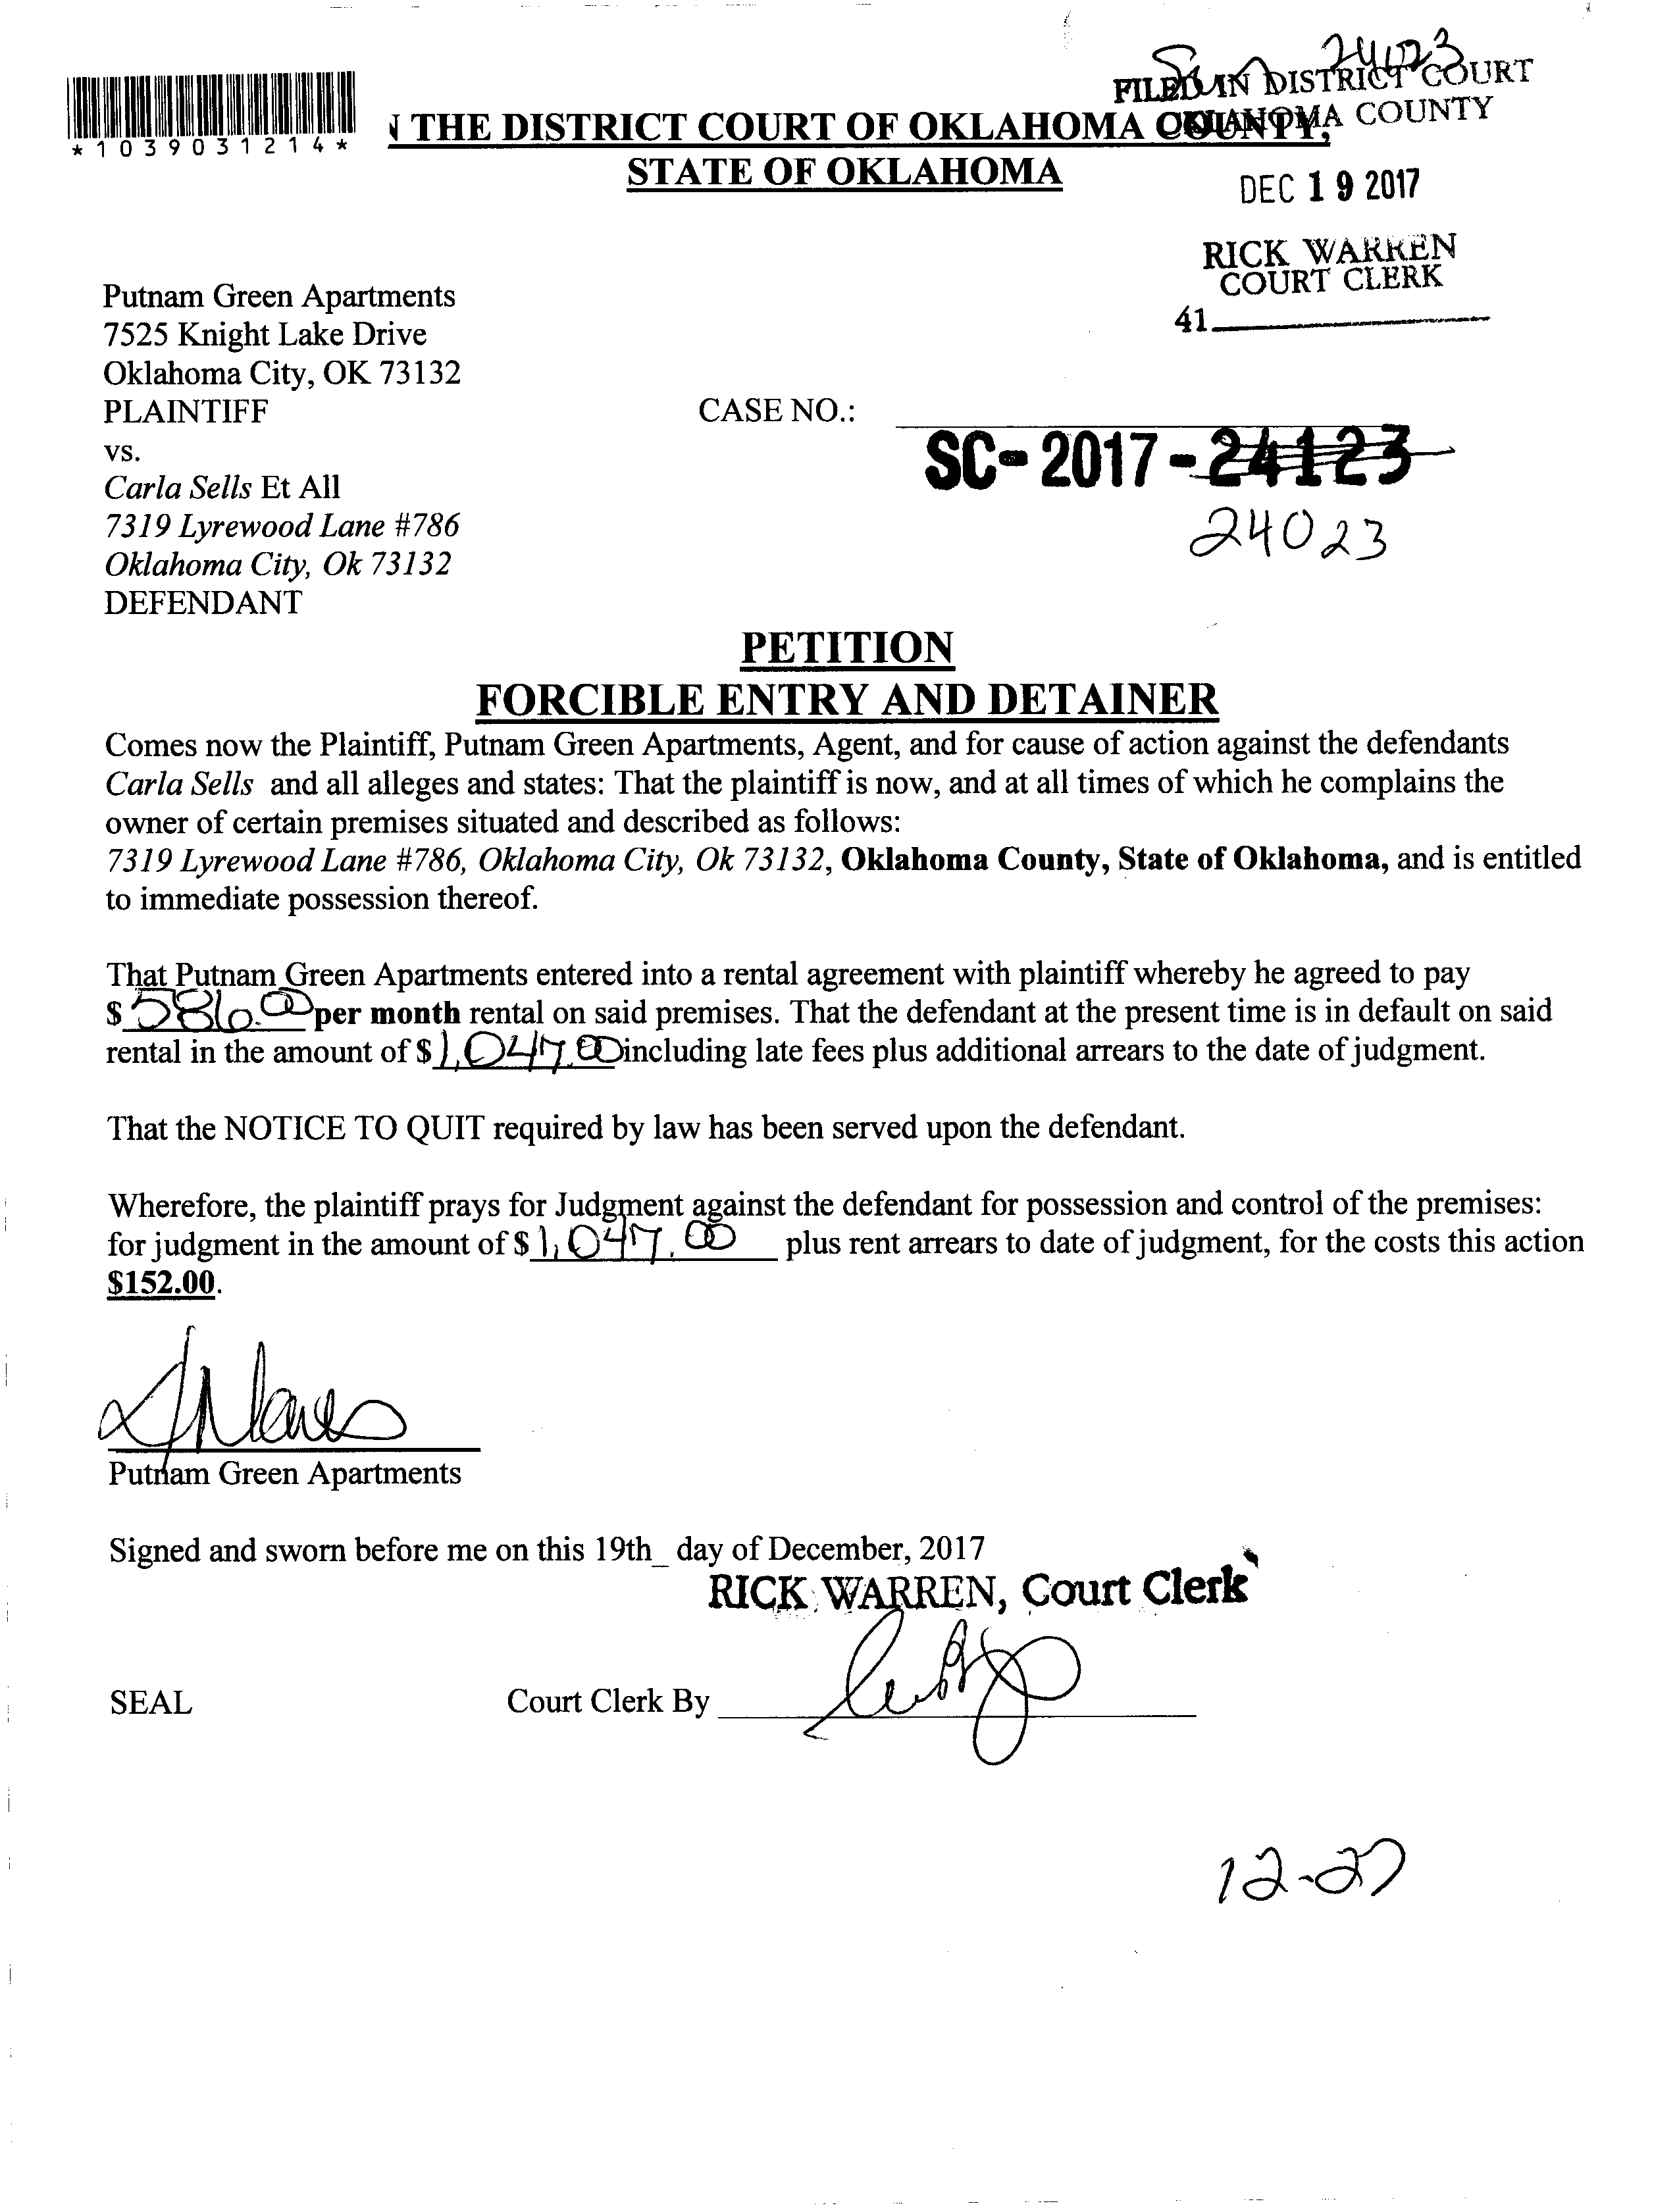 24023
FILED IN DISTRICT COURT
OKLAHOMA COUNTY
*1039031214*
N THE DISTRICT COURT OF OKLAHOMA COUNTY,
STATE OF OKLAHOMA
DEC 19 2017
RICK WARREN
COURT CLERK
41
Putnam Green Apartments
7525 Knight Lake Drive
Oklahoma City, OK 73132
PLAINTIFF
CASE NO.:
vs.
SC-2017-24123
Carla Sells Et All
7319 Lyrewood Lane #786
24023
Oklahoma City, Ok 73132
DEFENDANT
PETITION
FORCIBLE ENTRY AND DETAINER
Comes now the Plaintiff, Putnam Green Apartments, Agent, and for cause of action against the defendants
Carla Sells and all alleges and states: That the plaintiff is now, and at all times of which he complains the
owner of certain premises situated and described as follows:
7319 Lyrewood Lane #786, Oklahoma City, Ok 73132, Oklahoma County, State of Oklahoma, and is entitled
to immediate possession thereof.
That Putnam Green Apartments entered into a rental agreement with plaintiff whereby he agreed to pay
$586.00 per month rental on said premises. That the defendant at the present time is in default on said
rental in the amount of $1,047.00 including late fees plus additional arrears to the date of judgment.
That the NOTICE TO QUIT required by law has been served upon the defendant.
Wherefore, the plaintiff prays for Judgment against the defendant for possession and control of the premises:
for judgment in the amount of $1,047.00 plus rent arrears to date of judgment, for the costs this action
$152.00.
Putnam Green Apartments
Signed and sworn before me on this 19th_ day of December, 2017
RICK WARREN, Court Clerk
SEAL
Court Clerk By
12-27